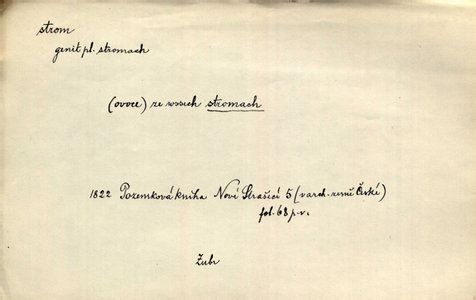 strom
genit pl. stromach
(ovoce) ze wssech stromach
1822 Pozemková kniha Nové Strašicí 5 (v arch. země České)
fol. 68 p. v.
Žubr